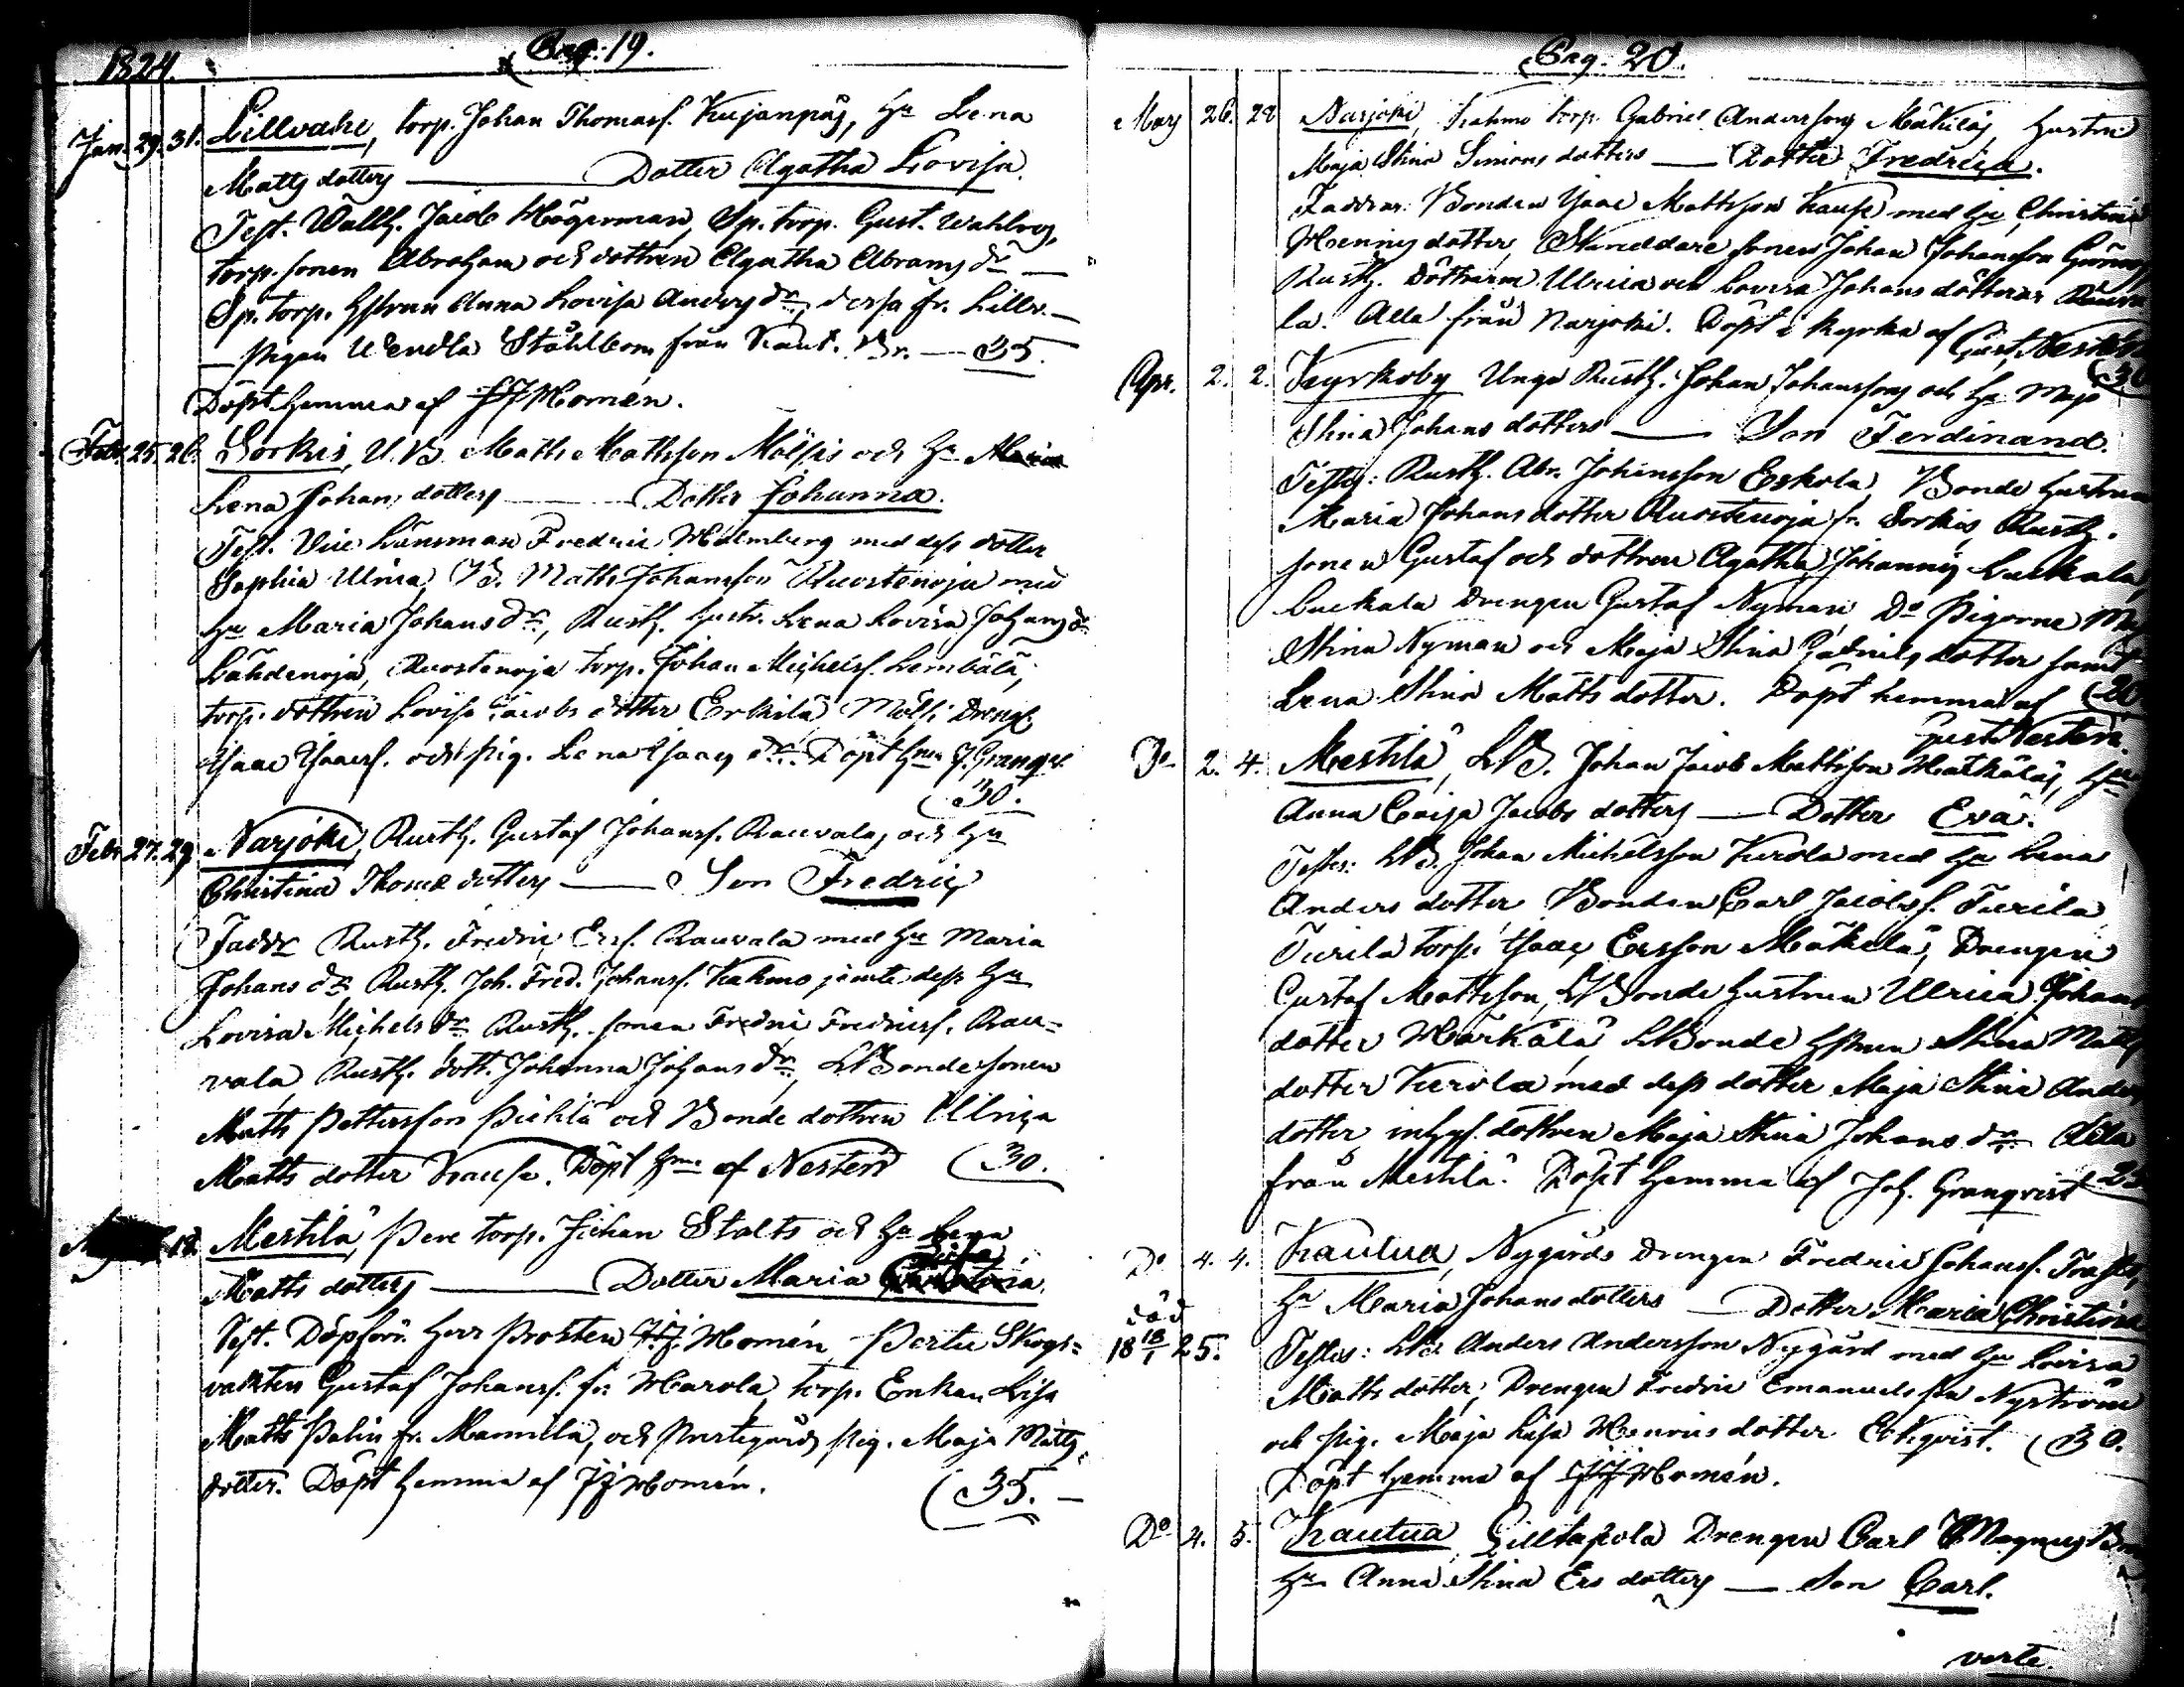 1824. Pag. 19.
Jan. 29. 31. Lillvahe, torp. Johan Thomasf. Kujanpäs, Hu Lena
Matts dotters — Dotter Agatha Lovisa.
Test. Wallb. Jacob Högerman, Sp. torp. Gust. Wahlroos,
torp. sonen Abraham och dottren Agatha Abrams dr —
Sp. torp. Hstrun Anna Lovisa Anders dr, dessa fr. Lillv. —
— pigan Wendla Ståhlbom från Kaut. Br. — 35.
Döpt hemma af JJ Homén.
Febr. 25. 26. Sorkis, U.B. Matts Mattsson Mölsis och Hu
Lena Johans dotters — Dotter Johanna.
Test. Vice Länsman Fredric Malmberg med dess dotter
Sophia Ulrica, B. Matts Johansson Ruostenoja med
Hu Maria Johans dr, Rusth. Hustr. Lena Lovisa Johans dr
Lähdenoja, Ruostenoja torp. Johan Michelsf. Lembälä,
torp. dottren Lovisa Jacobs dotter Erkilä Mölsi Dreng.
Isaac Isaacsf. och pig. Lena Isaacs dr. Döpt hma J. Granqv.
(30.
Febr. 27. 29. Narjoki, Rusth. Gustaf Johansf. Rauvalas och Hu
Christina Thomæ dotters — Son Fredric
Faddr Rusth. Fredric Ersf. Rauvala med Hu Maria
Johans dr Rusth. Joh. Fred. Johansf. Kahmo jämte dess Hu
Lovisa Michels dr Rusth. sonen Fredric Fredricsf. Rau-
vala, Rusth. dott. Johanna Johans dr, LBondesonen
Matts Pettersson Pichla och Bonde dottren Ulrica
Matts dotter Krause. Döpt hma af Nestén (30.
12. Mestilä, Pere torp. Johan Stolts och Hu Lena
Matts dotters — Dotter Maria
Test. Döpförr. Herr Prosten JJ. Homén Pertu Skogs-
vakten Gustaf Johansf. fr. Harola, torp. Enkan Lisa
Matts Palin fr. Mannila, och Prestegårds pig. Maja Matts
dotter. Döpt hemma af JJ Homén. (35. —
Pag. 20.
Mars 26. 28 Narjoki, Kahmo torp. Gabriel Anderssons Mäkiläs Hustru
Maja Stina Simons dotters — Dotter Fredrica.
Faddrar: Bonden Isaac Mattsson Krause med Hu Christina
Hennings dotter, Skreddare sonen Johan Johansson
Rusth. Döttrarne Ulrica och Lovisa Johans döttrar Rauva
la. Alla från Narjoki. Döpt i kyrka af Gust. Nestén
(30
Apr. 2. 2. Kyrkoby Unga Rusth. Johan Johanssons och Hu Maja
Stina Johans dotters — Son Ferdinand.
Testes: Rusth. Abr. Johansson Eskola, Bonde Hustrun
Maria Johans dotter Ruostenoja fr. Sorkis, Rusth.
sonen Gustaf och dottren Agatha Johannis Luckala,
Luckala Drengen Gustaf Nyman, Do Pigorna
Stina Nyman och Maja Stina Gabriels dotter samt
Lena Stina Matts dotter. Döpt hemma af
Gust. Nestén.
Do 2. 4. Mestilä, LB. Johan Jacob Mattsson Harkäläs, Hu
Anna Caisa Jacobs dotters — Dotter Eva.
Testes: LB. Johan Michelsson Kerola med Hu Lena
Anders dotter Bonden Carl Jacobsf. Turila,
Turila torp. Isaac Ersson Mäkelä, Drengen
Gustaf Mattsson, LBonde Hustrun Ulrica Johans
dotter Harkälä, LBonde Hstrun Stina Matts
dotter Kerola med dess dotter Maja Stina Anders
dotter, inhys. dottren Maja Stina Johans dr Alla
från Mestilä. Döpt hemma af Joh. Granqvist
Do 4. 4. Kautua, Nygårds Drengen Fredric Johansf.
Hu Maria Johans dotters — Dotter Maria Christina
död
18 18/1 25. Testes: LB. Anders Andersson Nygård med Hu Lovisa
Matts dotter; Drengen Fredric Emanuelsson Nyström
och pig. Maja Lisa Henrics dotter Ekqvist. (30.
Döpt hemma af JJ Homén.
Do 4. 5. Kautua Gilltapola Drengen Carl Magnus
Hu Anna Stina Ers dotters — Son Carl.
verte.